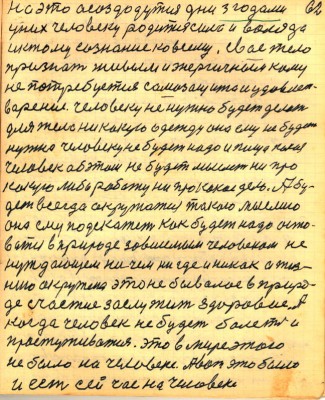 на это создадутся дни з годами 62
у них человеку родится сило и воля да
и к тому сознание ко всему. Свае тело
признать живым и энергичным кому
не потребуется самозащита и удовлет-
варения. человеку не нужно будет делат
для тело никакую одежду она ему не будет
нужна человеку не будет надо и пища когда
человек аб этом не будет мыслит ни про
какую либо работу ни про какое дело. А бу-
дет всегда окружатся такою мыслию
она ему подскажет как будет надо оста-
ватся в природе зависимым человеком не
нуждающем ни чем ни где и никак а жиз-
нию окружена это не бывалое в приро-
де счастие заслужит здоровие. А
когда человек не будет болеть и
простуживатся. Это в мире этого
не было на человеке. А вот это было
и есть сей час на человеке